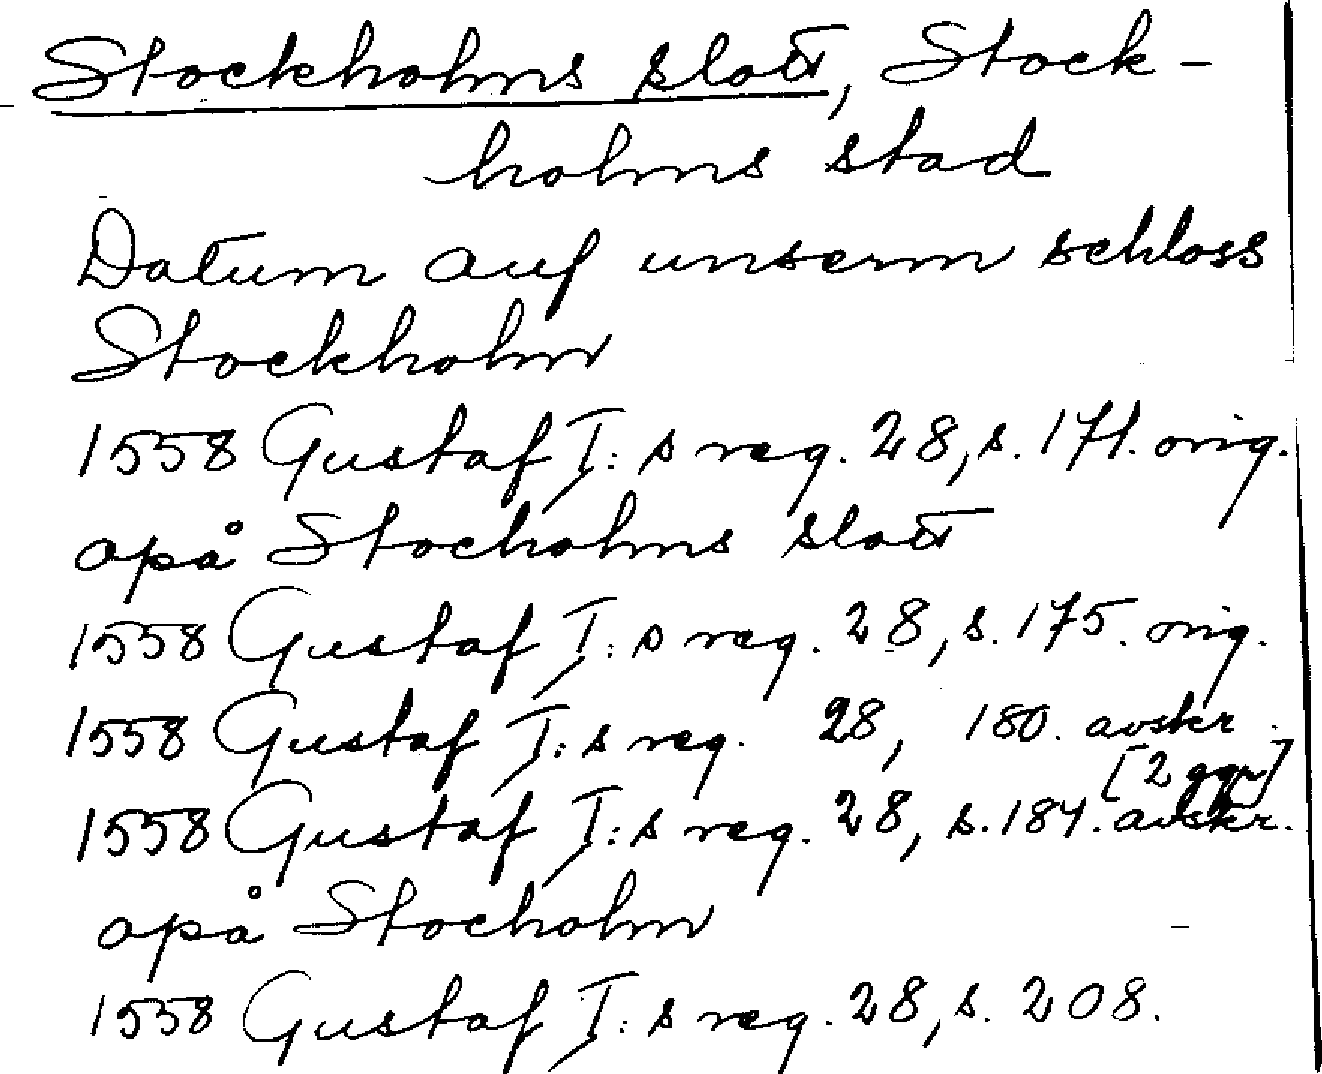 Stockholms slott, Stock-
holms stad
Datum auf unserm schloss
Stockholm
1558 Gustaf I:s reg. 28, s. 171. orig.
opå Stocholms slott
1558 Gustaf I:s reg. 28, s. 175. orig.
1558 Gustaf I:s reg. 28, 180. avskr.
[2 ggr]
1558 Gustaf I:s reg. 28, s. 184. avskr.
opå Stocholm
1558 Gustaf I:s reg. 28, s. 208.